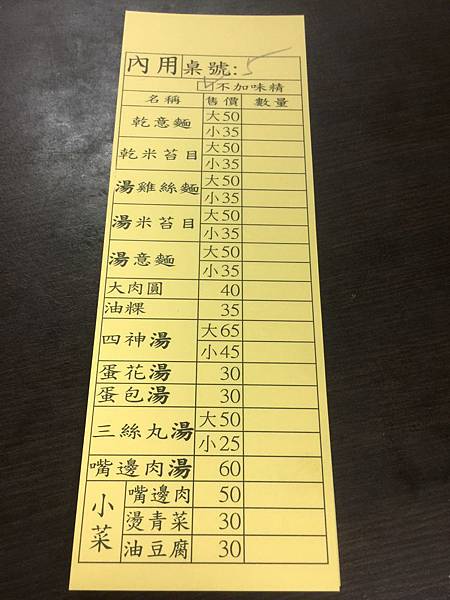 內用桌號:5
不加味精
名稱 售價 數量
乾意麵 大50
小35
乾米苔目 大50
小35
湯雞絲麵 大50
小35
湯米苔目 大50
小35
湯意麵 大50
小35
大肉圓 40
油粿 35
四神湯 大65
小45
蛋花湯 30
蛋包湯 30
三絲丸湯 大50
小25
嘴邊肉湯 60
小菜 嘴邊肉 50
燙青菜 30
油豆腐 30